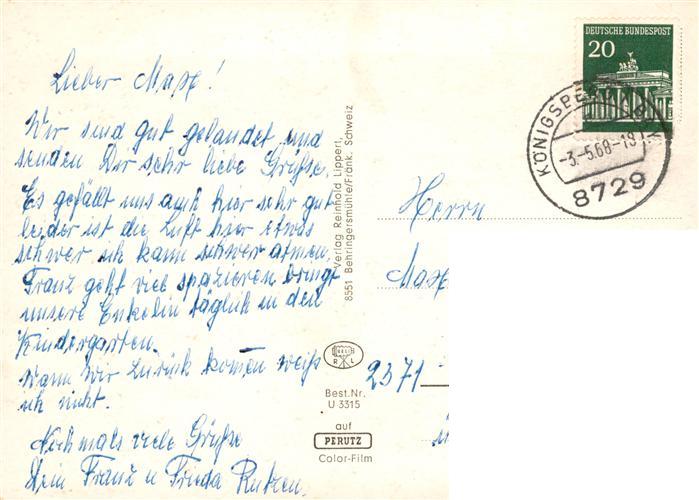 Lieber Max!
Wir sind gut gelandet und
senden Dir sehr liebe Grüße.
Es gefällt uns auch hier sehr gut
leider ist die Luft hier etwas
schwer ich kann schwer atmen.
Franz geht viel spazieren bringt
unsere Enkelin täglich in den
Kindergarten.
wann wir zurück komen weiß
ich nicht.
Nochmals viele Grüße
Dein Franz u Frieda
Verlag Reinhold Lippert,
8551 Behringersmühle/Fränk. Schweiz
R L
Best.Nr.
U 3315
auf
PERUTZ
Color-Film
DEUTSCHE BUNDESPOST
20
-3.-5.68-18
8729
Herrn
Max
2371